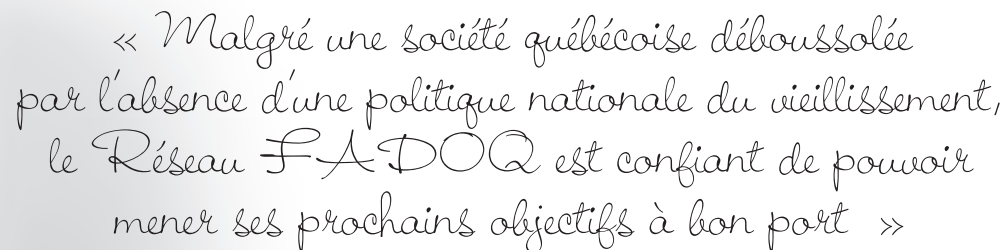 « Malgré une société québécoise déboussolée
par l'absence d'une politique nationale du vieillissement,
le Réseau FADOQ est confiant de pouvoir
mener ses prochains objectifs à bon port »